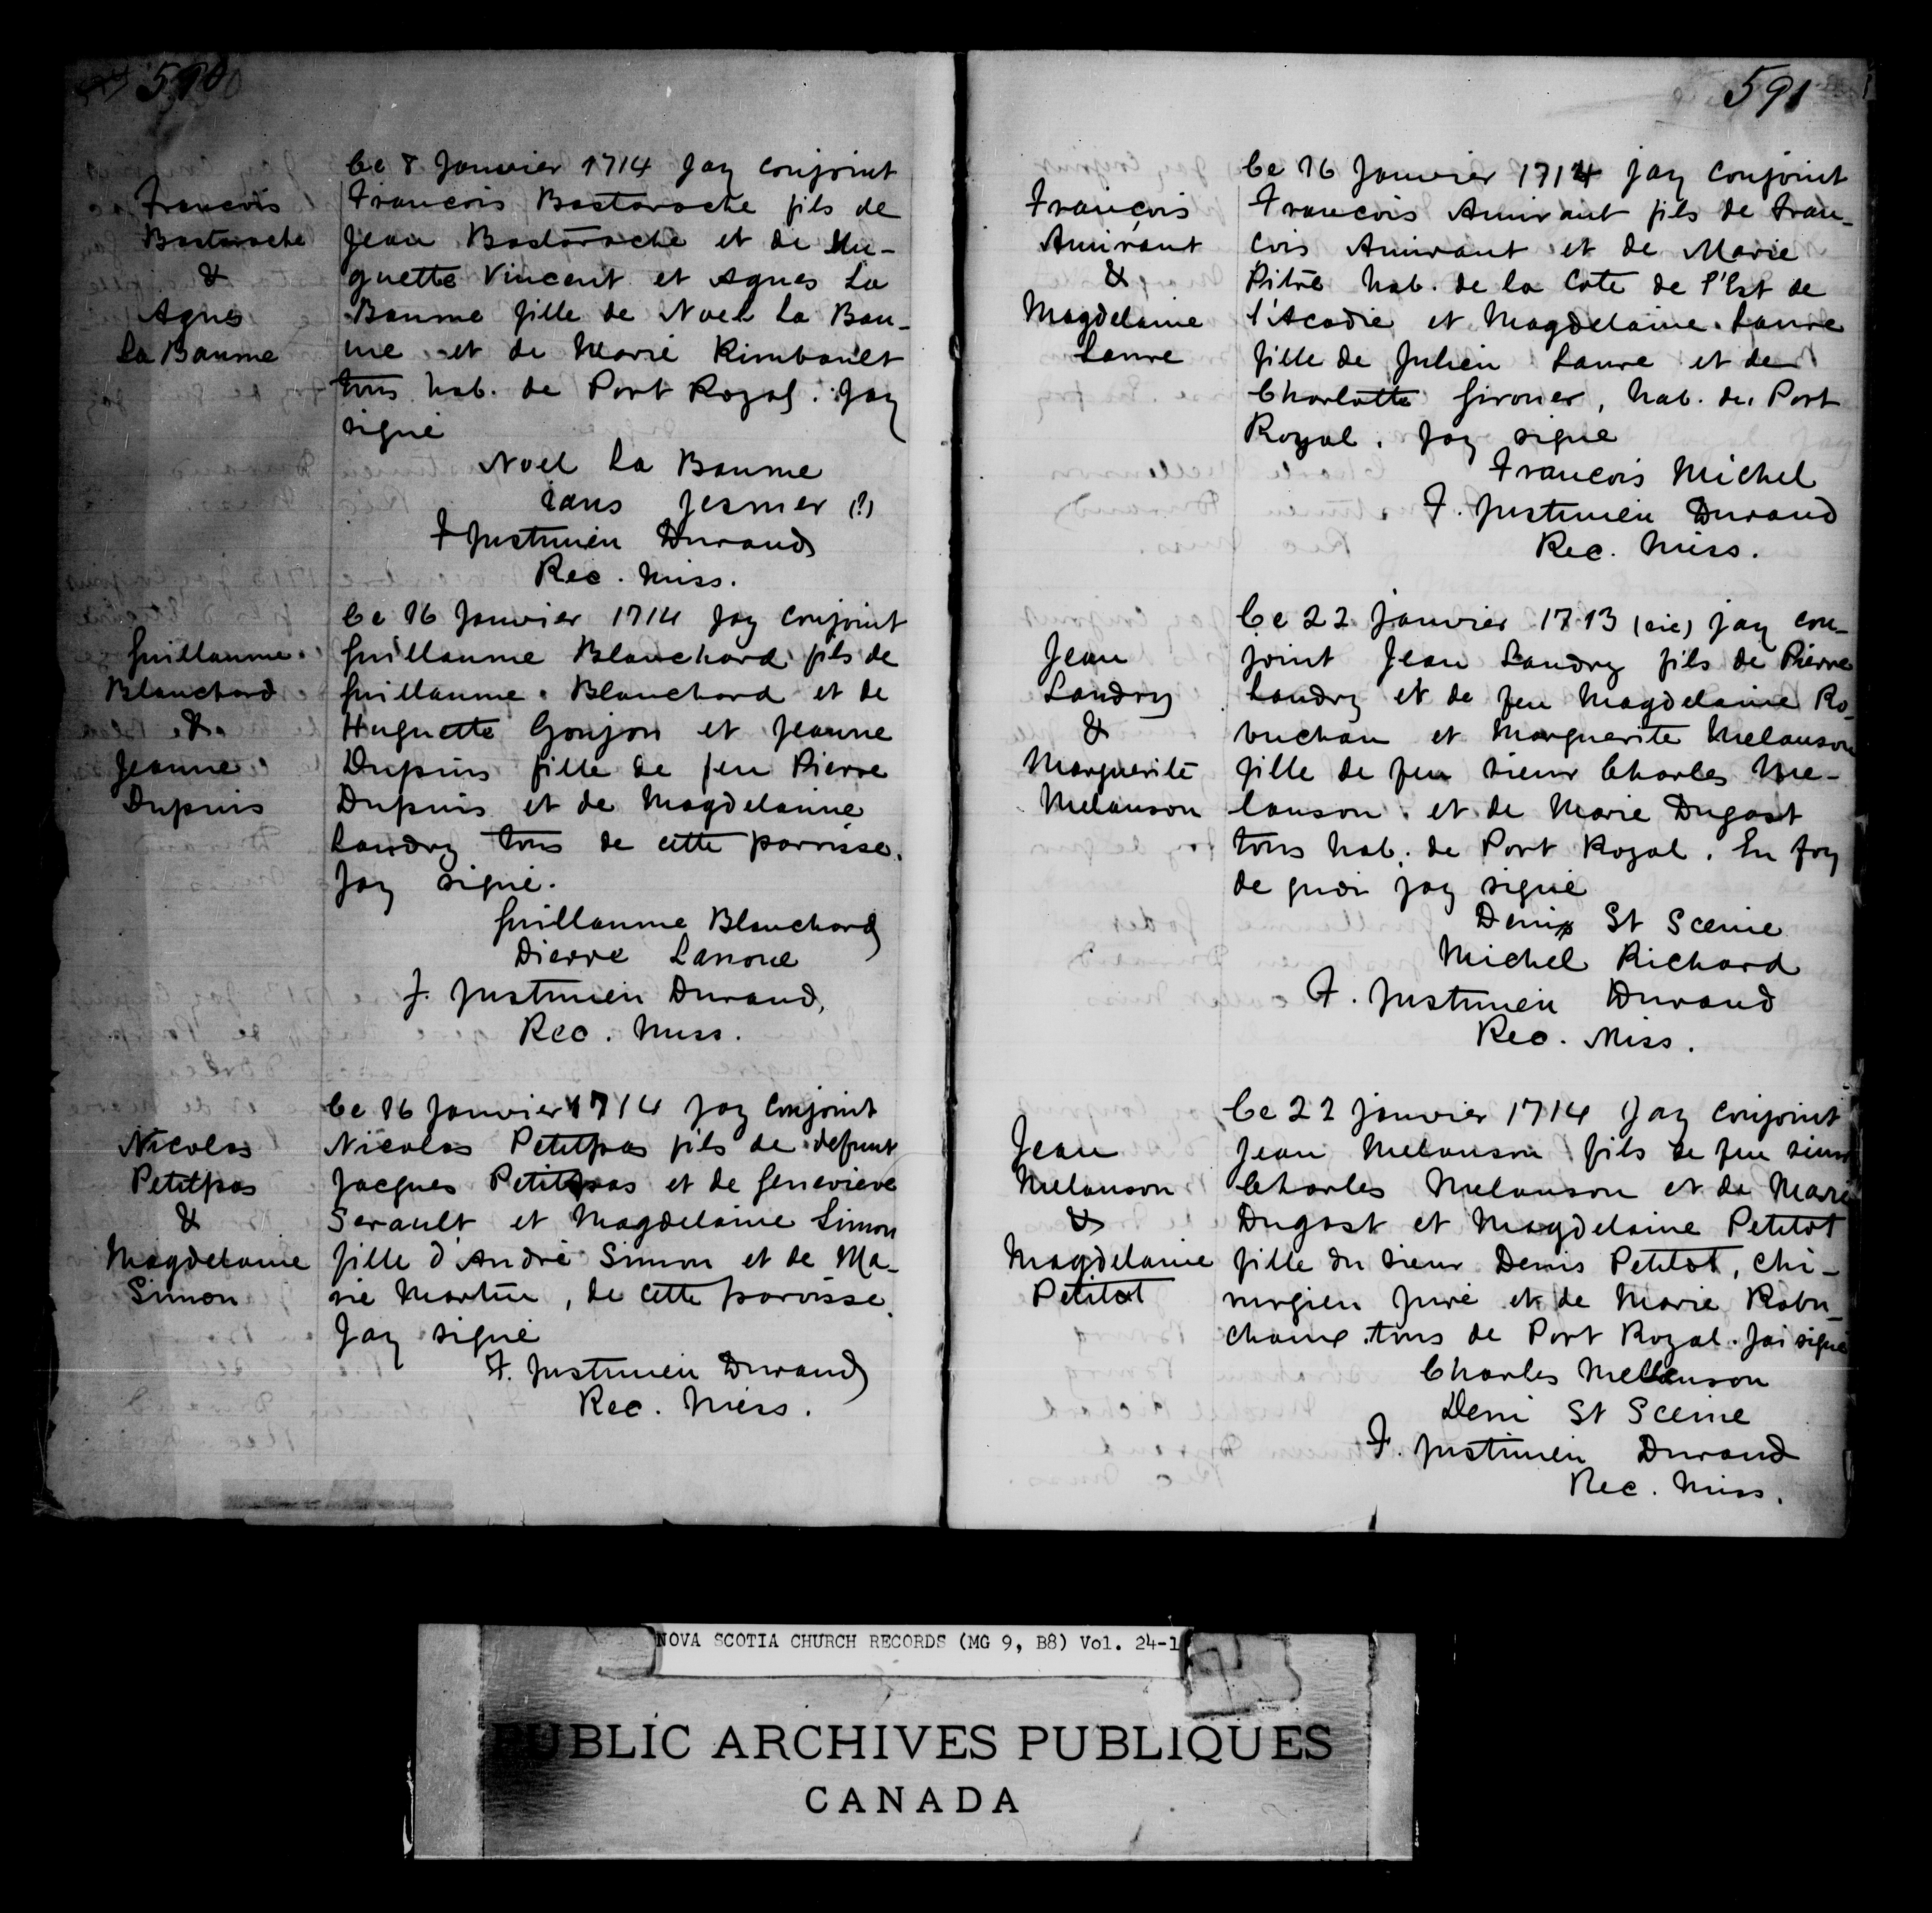 590
François
Bastarache
&
Agnes
La Baume
Ce 8 Janvier 1714 Jay conjoint
François Bastarache fils de
Jean Bastarache et de Hu-
guette Vincent et Agnes La
Baume fille de Noel La Bau-
me et de Marie Rimbault
tous hab. de Port Royal. Jay
signé
Noel La Baume
Jans Jesmer (?)
F Justinien Durand
Rec. Miss.
Guillaume
Blanchard
&
Jeanne
Dupuis
Ce 16 Janvier 1714 Jay conjoint
Guillaume Blanchard fils de
Guillaume Blanchard et de
Huguette Goujon et Jeanne
Dupuis fille de feu Pierre
Dupuis et de Magdelainne
Landry tous de cette parvisse.
Jay signé.
Guillaume Blanchard
Pierre Lanoue
F. Justinien Durand,
Rec. Miss.
Nicolas
Petitpas
&
Magdelaine
Simon
Ce 16 Janvier 1714 Jay conjoint
Nicolas Petitpas fils de defunt
Jacques Petitpas et de Genevieve
Serault et Magdelaine Simon
fille d'André Simon et de Ma-
rie Martin, de cette paroisse.
Jay signé
F. Justinien Durand
Rec. Miss.
591
François
Amirant
&
Magdelaine
Laure
Ce 16 Janvier 1714 Jay conjoint
François Amirant fils de Fran-
cois Amirant et de Marie
Pitre hab. de la Cote de l'Est de
l'Acadie et Magdelaine Laure
fille de Julien Laure et de
Charlotte Girouer, hab. du Port
Royal. Jay signe
François Michel
F. Justinien Durand
Rec. Miss.
Jean
Landry
&
Marguerite
Melanson
Ce 22 Janvier 1713 (sic) jay con-
joint Jean Landry fils de Pierre
Landry et de feu Magdelaine Ro-
buchau et Marguerite Melanson
fille de feu sieur Charles Me-
lanson et de Marie Dugast
tous hab. de Port Royal. En foy
de quoi jay signé
Denis St Scenne
Michel Richard
F. Justinien Durand
Rec. Miss.
Jean
Melanson
&
Magdelaine
Petitot
Ce 22 janvier 1714 Jay conjoint
Jean Melanson fils de feu sieur
Charles Melanson et de Marie
Dugast et Magdelaine Petitot
fille du sieur Denis Petitot, chi-
rurgien juré et de Marie Robu-
chaux tous de Port Royal. Jai signé
Charles Mellanson
Deni St Scenne
F. Justinien Durand
Rec. Miss.
NOVA SCOTIA CHURCH RECORDS (MG 9, B8) Vol. 24-1
PUBLIC ARCHIVES PUBLIQUES
CANADA